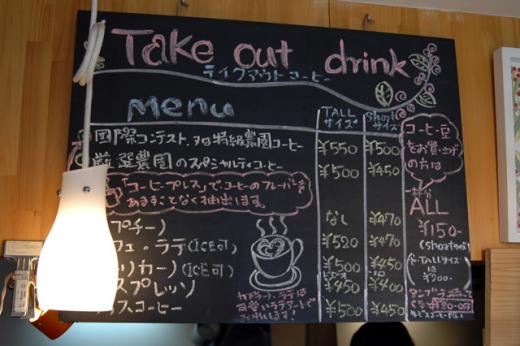 Take out drink
テイクアウトコーヒー
menu
TALL サイズ
Short サイズ
国際コンテスト 特級農園コーヒー ¥550 ¥500
厳選農園のスペシャルティコーヒー ¥500 ¥450
「コーヒープレス」でコーヒーのフレーバーを
あますことなく抽出します。
プチーノ なし ¥470
フェ・ラテ(ICE可) ¥520 ¥470
リカーノ(ICE可) ¥500 ¥450
スプレッソ ¥450 ¥400
スコーヒー ¥500 ¥450
コーヒー豆
をお買上げ
の方は
ALL
¥150-
(Shortサイズ)
TALLサイズ
は
¥200-